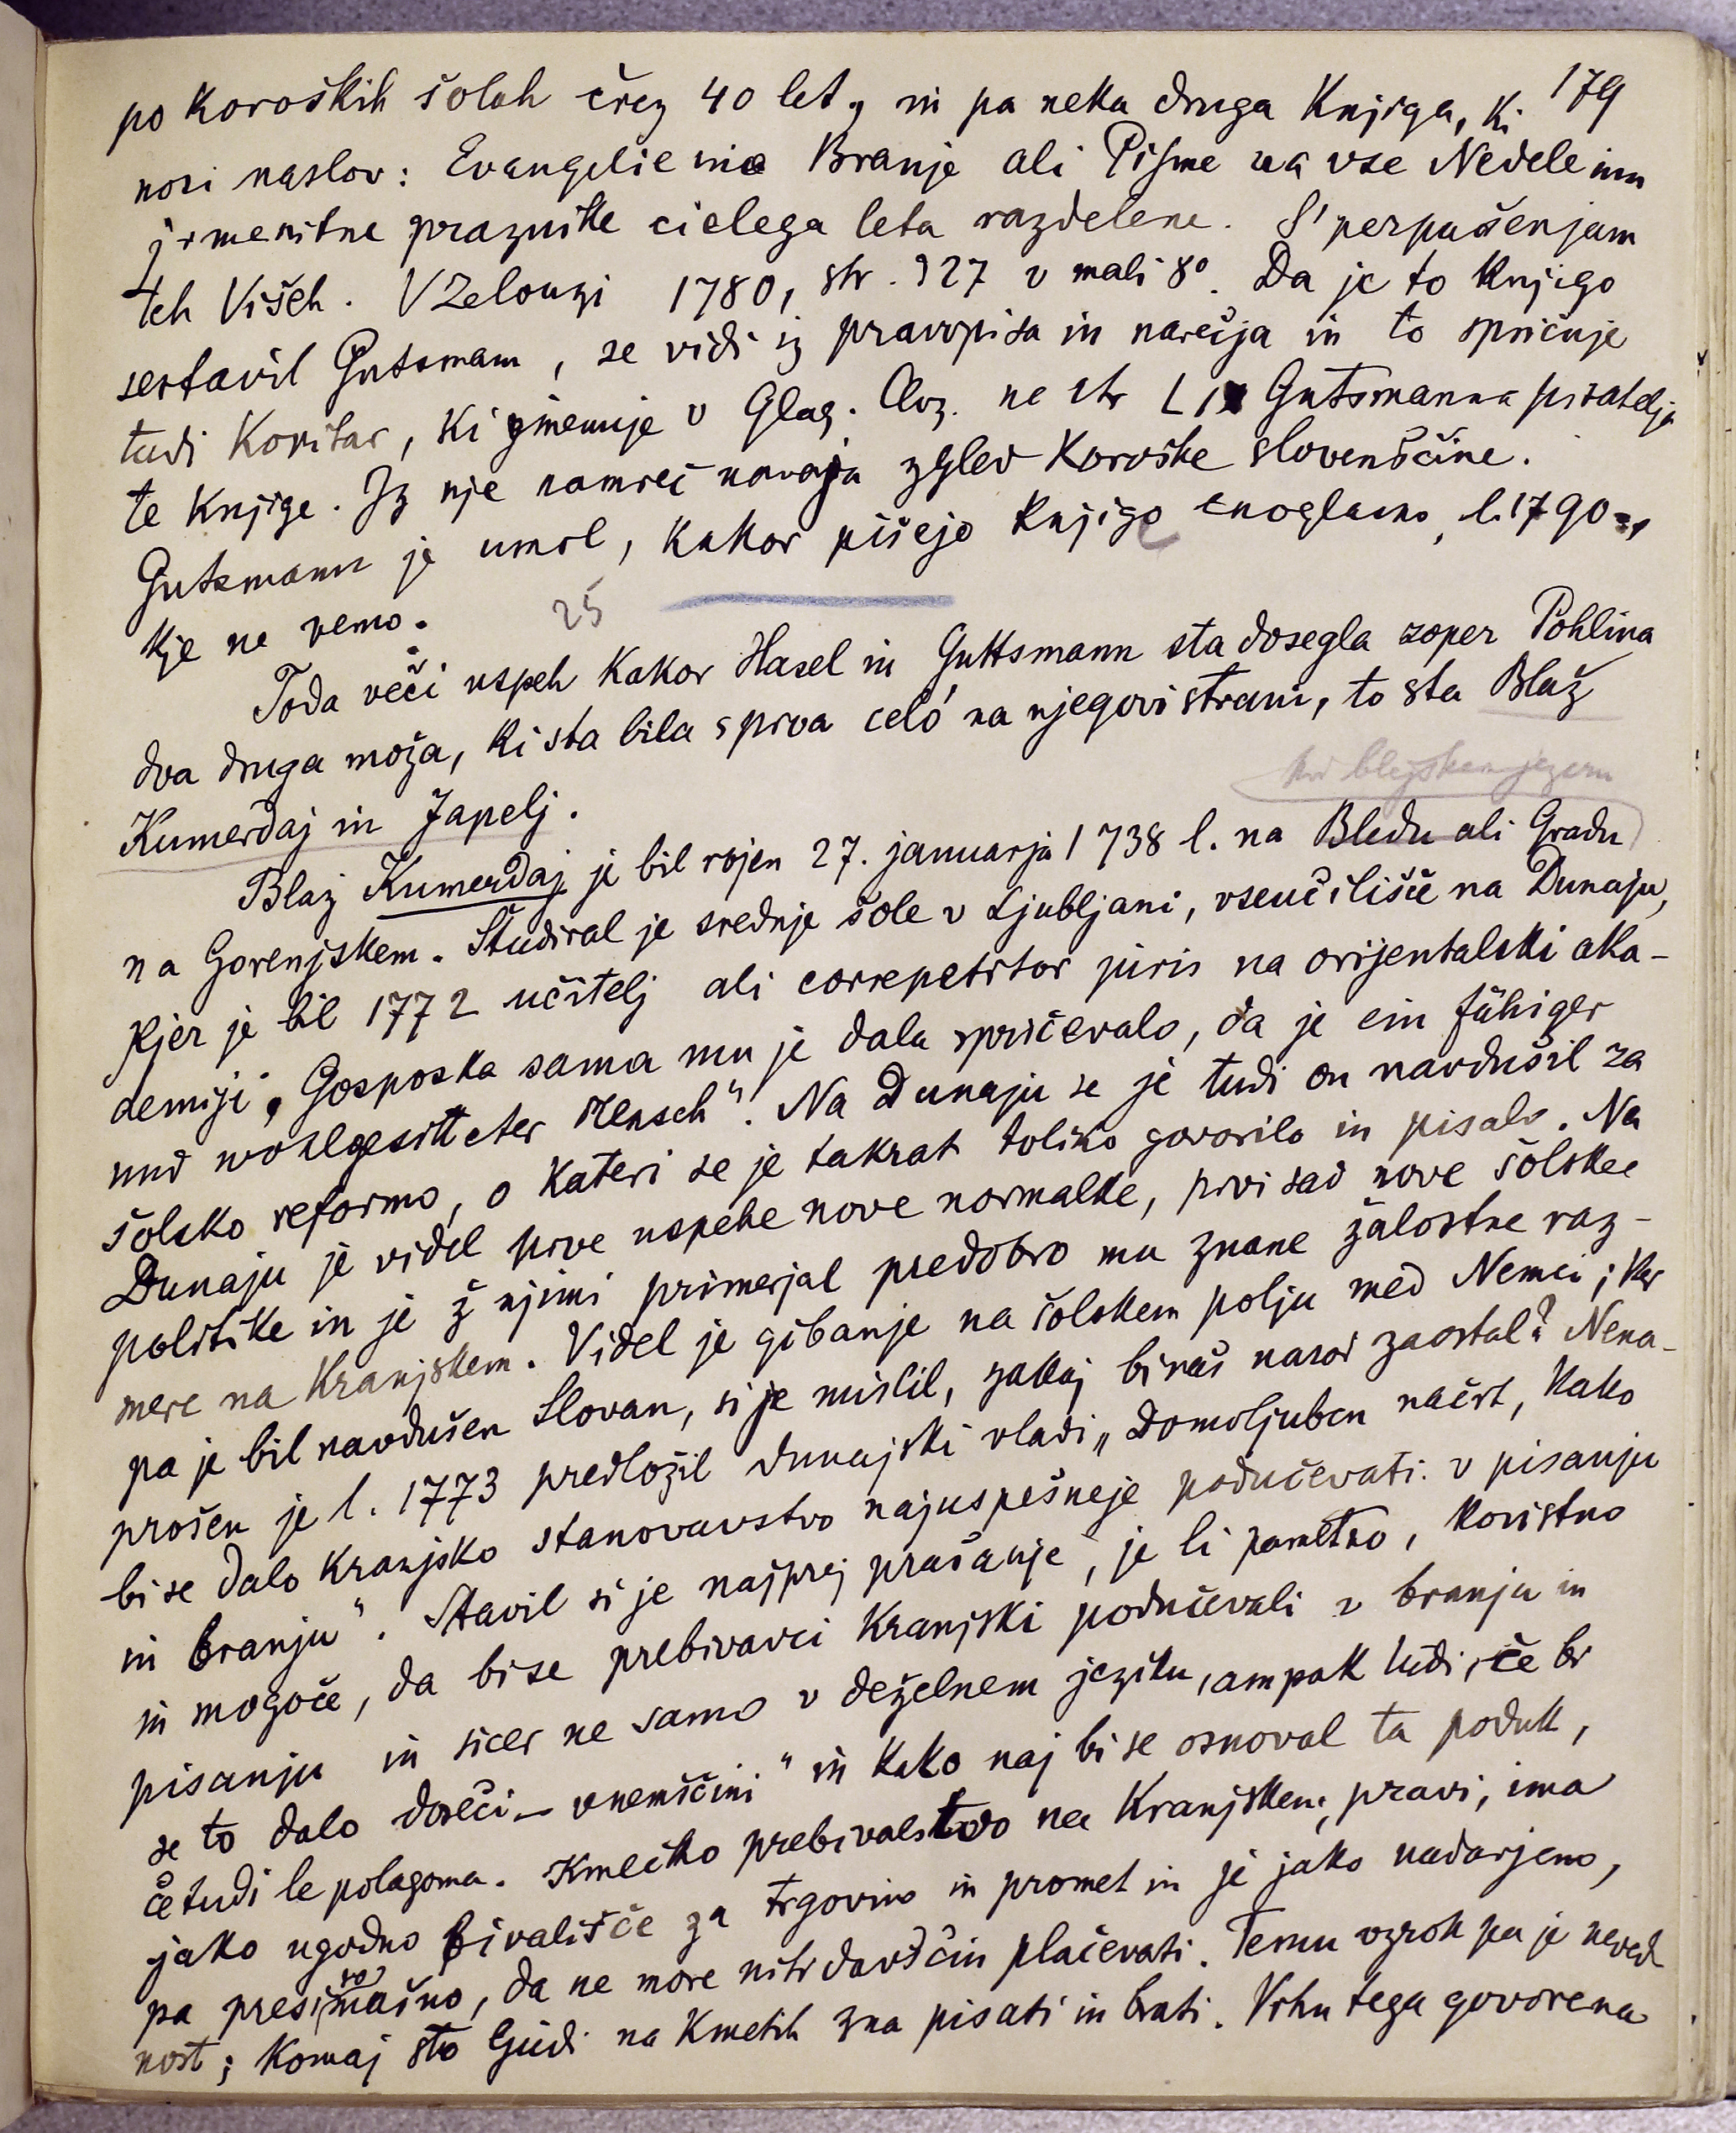 179
po Koroških šolah črez 40 let, in pa neka druga Knjiga, ki
nosi naslov: Evangelie ino Branje ali Pisme na vse Nedele inu
jimenitne praznike cielega leta razdelene. S' perpušenjam
teh Višeh. V Zelouzi 1780, str. 327 v mali 8°. Da je to Knjigo
sestavil Gutsmann, se vidi iz pravopisa in narečja in to spričuje
tudi Kopitar, ki imenuje v Glag. Cloz. na str LIX Gutsmanna pisatelja
te Knjige. Iz nje namreč navaja zgled Koroške slovenščine.
Gutsmann je umrl, kakor pišejo Knjige enoglasno, l. 1790.,
Kje ne vemo.
25
Toda veči uspeh Kakor Hasel in Guttsmann sta dosegla zoper Pohlina
dva druga moža, ki sta bila sprva celó na njegovi strani, to sta Blaž
Kumerdaj in Japelj.
blejskem jezeru
Blaž Kumerdaj je bil rojen 27. januarja 1738 l. na Bledu ali Gradu
na Gorenjskem. Študiral je srednje šole v Ljubljani, vseučilišče na Dunaju,
Kjer je bil 1772 učitelj ali correpetitor juris na orijentalski aka-
demiji. Gosposka sama mu je dala spričevalo, da je ein fähiger
und wohlgesitteter Mensch". Na Dunaju se je tudi on navdušil za
šolsko reformo, o kateri se je takrat toliko govorilo in pisalo. Na
Dunaju je videl prve uspehe nove normalke, prvi sad nove šolske
politike in je ž njimi primerjal predobro mu znane žalostne raz-
mere na Kranjskem. Videl je gibanje na šolskem polju med Nemci; ker
pa je bil navdušen Slovan, si je mislil, zakaj bi naš narod zaostal? Nena-
prošen je l. 1773 predložil dunajski vladi „Domoljuben načrt, kako
bi se dalo Kranjsko stanovavstvo najuspešneje podučevati v pisanju
in branju". Stavil si je najprej prašanje, je li pametno, koristno
in mogoče, da bi se prebivavci Kranjski podučevali v branju in
pisanju in sicer ne samo v deželnem jeziku, ampak tudi, če bi
se to dalo doseči – v nemščini" in kako naj bi se osnoval ta poduk,
če tudi le polagoma. Kmečko prebivalstvo na Kranjskem, pravi, ima
jako ugodno bivališče za trgovino in promet in je jako nadarjeno,
pa presiromašno, da ne more niti davščin plačevati. Temu vzrok pa je neved
nost; Komaj sto ljudi na Kmetih zna pisati in brati. Vrhu tega govorena